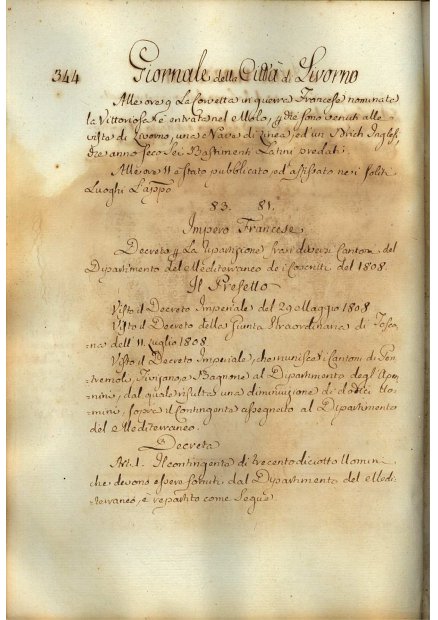 344 Giornale della Città di Livorno
Alle ore 9 La Corvetta in guerra Francese nominata
la Vittoriosa è entrata nel Molo, e sono venuti alla
vista di Livorno, una Nave di Linea, ed un Brich Ingles,
che anno seco Sei Bastimenti Latini predati.
Alle ore 11 è stato pubblicato, ed affissato nei soliti
Luoghi L'appo
83. 81.
Impero Francese
Decreto La repartizione fra i diversi Cantoni del
Dipartimento del Mediterraneo de i Coscritti del 1808
Il Prefetto
Visto il Decreto Imperiale del 29 Maggio 1808
Visto il Decreto della Giunta Straordinaria di Tosca-
na dell' 11 Luglio 1808
Visto il Decreto Imperiale, che riunisce i Cantoni di Pon-
tremoli, e Bagnone al Dipartimento degl' Apen-
nini, dal quale risulta una diminuzione di dodici Uo-
mini, sopra il Contingente assegnato al Dipartimento
del Mediterraneo.
Decreta
Art. 1. Il contingente di trecentodiciotto Uomini
che devono essere forniti dal Dipartimento del Medi-
terraneo, è repartito come segue